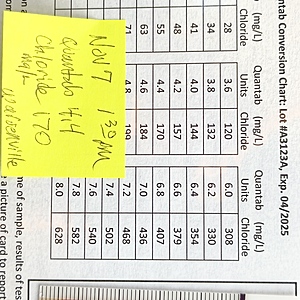 ntab Conversion Chart: Lot #A3123A, Exp. 04/2025
Chloride (mg/L) Quantab Units Chloride (mg/L) Quantab Units Chloride (mg/L)
28 3.6 120 6.0 308
34 3.8 132 6.2 330
41 4.0 144 6.4 354
48 4.2 157 6.6 379
55 4.4 170 6.8 407
63 4.6 184 7.0 436
71 4.8 199 7.2 468
7.4 502
7.6 540
7.8 582
8.0 628
Nov 7 1 30 PM
Quantab 4.4
Chloride 170
mg/L
me of sample, results of tes
a picture of card to report